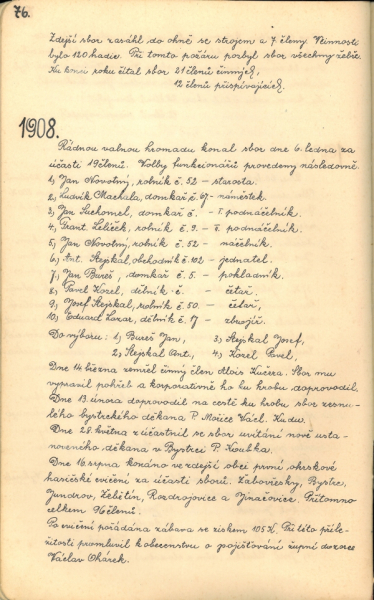 76.
Zdejší sbor zasáhl do ohně se strojem a 7. členy. V činnosti
bylo 120 hadic. Při tomto požáru pozbyl sbor všechny žebře.
Ku konci roku čítal sbor 21 členů činných,
12 členů přispívajících.
1908.
Řádnou valnou hromadu konal sbor dne 6. ledna za
účasti 19 členů. Volby funkcionářů provedeny následovně.
1, Jan Novotný, rolník č. 52 – starosta.
2, Ludvík Machala, domkář č. 67 – náměstek.
3, Jan Suchomel, domkář č. – I. podnáčelník.
4, Frant. Lelíček, rolník č. 9. – II. podnáčelník.
5, Jan Novotný, rolník č. 52 – náčelník.
6, Ant. Stejskal, obchodník č. 102 – jednatel.
7, Jan Bureš, domkář č. 5. – pokladník.
8, Pavel Kozel, dělník č. – četař.
9, Josef Stejskal, rolník č. 50. – četař,
10, Eduard Lazar, dělník č. 17 – zbrojíř.
Do výboru: 1, Bureš Jan, 3, Stejskal Josef,
2, Stejskal Ant., 4, Kozel Pavel,
Dne 14 března zemřel činný člen Alois Kučera. Sbor mu
vypravil pohřeb a korporativně ho ku hrobu doprovodil.
Dne 13. února doprovodil na cestě ku hrobu sbor zesnu-
lého bystrckého děkana P. Václ. Kudu.
Dne 28. května zúčastnil se sbor uvítání nově usta-
noveného děkana v Bystrci P. Koubka.
Dne 16. srpna konáno ve zdejší obci první okrskové
hasičské cvičení za účasti sborů. Žabovřesky, Bystrc,
Jundrov, Žebětín, Rozdrojovice a Jinačovice. Přítomno
celkem členů.
Po cvičení pořádána zábava se ziskem 105 K. Při této příle-
žitosti promluvil k obecenstvu o pojišťování župní dozorce
Václav Okárek.